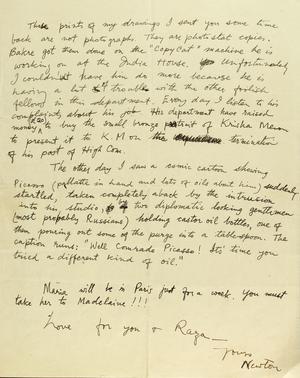 These prints of my drawings I sent you some time
back are not photographs. They are photostat copies.
Bakre got them done on the "CopyCat" machine he is
working on at the India House. Unfortunately
I couldn't have him do more because he is
having a bit of trouble with the other foolish
fellows in his department. Every day I listen to his
complaints about his job. His department have raised
money to buy the small bronze portrait of Krishna Menon
to present it to K.M on the termination
of his post of High Com.
The other day I saw a comic cartoon showing
Picasso (palette in hand and lots of oils about him) suddenly
startled, taken completely aback by the intrusion
into his studio, of two diplomatic looking gentlemen
(most probably Russians) holding castor oil bottles, one of
them pouring out some of the purge into a tablespoon. The
caption runs: "Well Comrade Picasso! It's time you
tried a different kind of oil."
Maria will be in Paris just for a week. You must
take her to Madelaine!!!
Love for you & Raza —
Yours
Newton